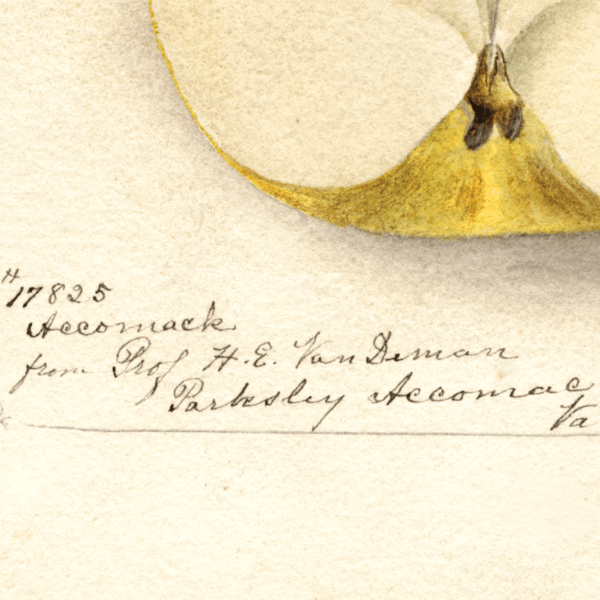 #17825
Accomack
from Prof H. E. Van Deman
Parksley Accomac
Va